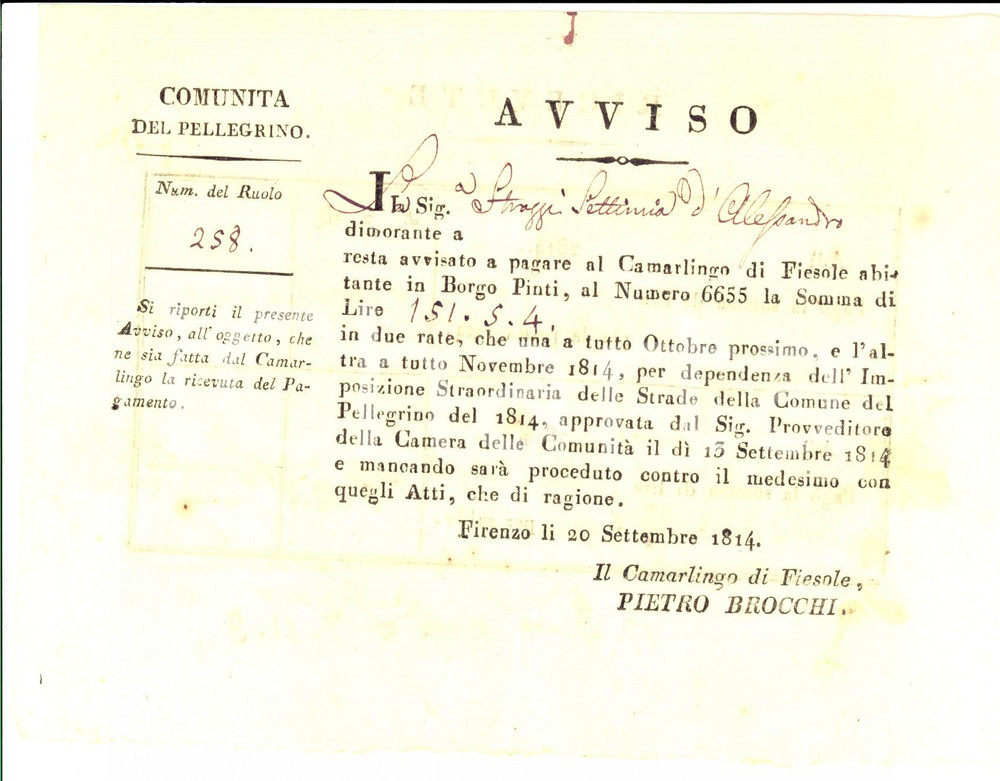 COMUNITA
DEL PELLEGRINO.
Num. del Ruolo
258.
Si riporti il presente
Avviso, all'oggetto, che
ne sia fatta dal Camar-
lingo la ricevuta del Pa-
gamento.
AVVISO
La Sig.a Strozzi Settimia d'Alessandro
dimorante a
resta avvisato a pagare al Camarlingo di Fiesole abi-
tante in Borgo Pinti, al Numero 6655 la Somma di
Lire 151.5.4.
in due rate, che una a tutto Ottobre prossimo, e l'al-
tra a tutto Novembre 1814, per dependenza dell'Im-
posizione Straordinaria delle Strade della Comune del
Pellegrino del 1814, approvata dal Sig. Provveditore
della Camera delle Comunità il dì 13 Settembre 1814
e mancando sarà proceduto contro il medesimo con
quegli Atti, che di ragione.
Firenze li 20 Settembre 1814.
Il Camarlingo di Fiesole,
PIETRO BROCCHI.